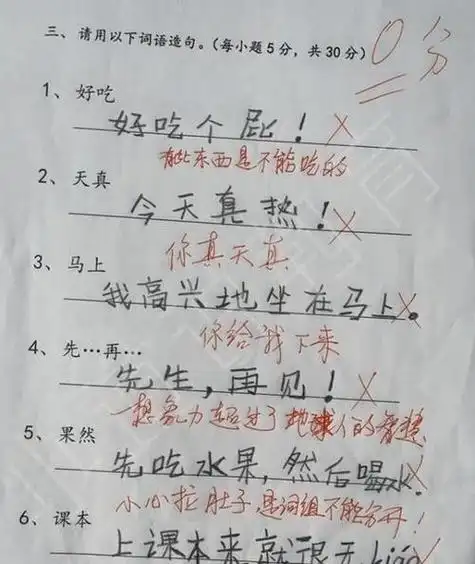 三、请用以下词语造句。(每小题5分，共30分) 0分
1、好吃
好吃个屁！
有些东西是不能吃的
2、天真
今天真热！
你真天真
3、马上
我高兴地坐在马上。
你给我下来
4、先…再…
先生，再见！
想象力超过了地球人的智慧
5、果然
先吃水果，然后喝水。
小心拉肚子 是词组不能分开！
6、课本
上课本来就很无liáo